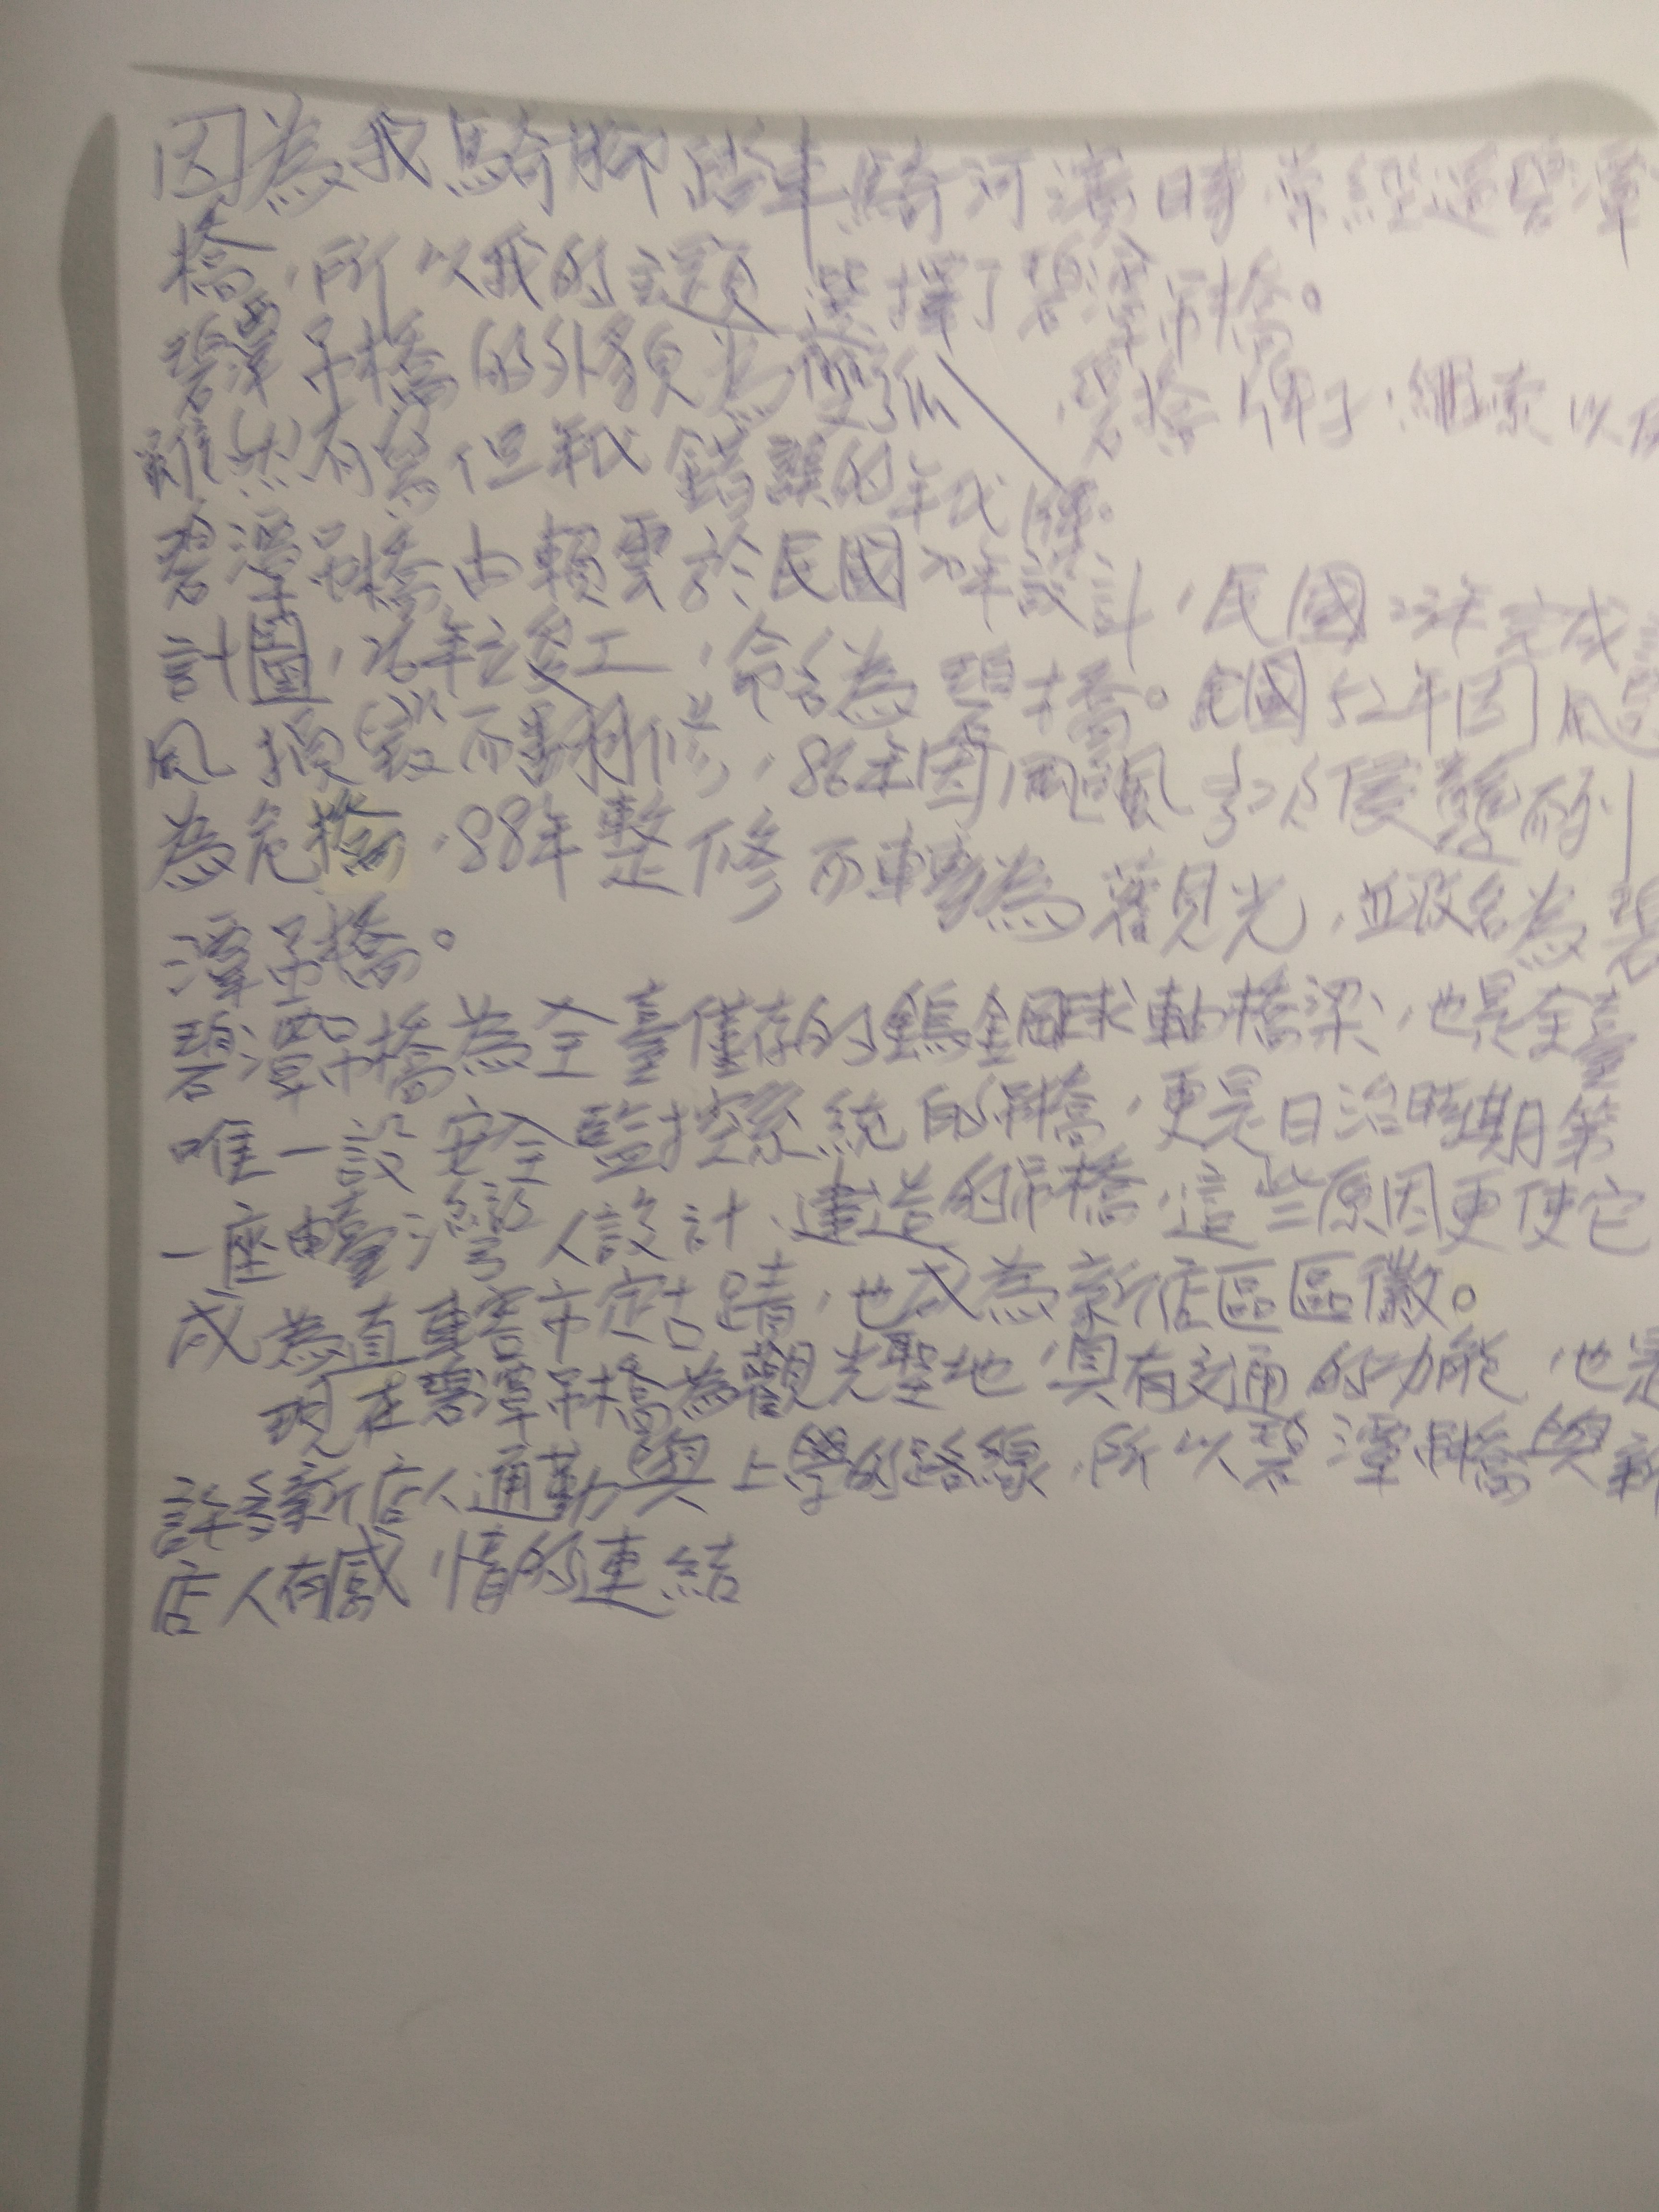 因為我騎腳踏車騎河濱時,常經過碧潭
橋,所以我的主題選擇了碧潭吊橋。
碧潭吊橋的外貌為雙弧,碧,牌子,繩索以
雖然有寫但年代錯誤的年代牌。
碧潭吊橋由賴雲於民國20年設計,民國22年完成
計圖,26年竣工,命名為碧橋。民國52年因
風損毀而翻修,86年因颱風多次侵襲而列
為危橋,88年整修而轉為觀光,並改名為碧
潭吊橋。
碧潭吊橋為全臺僅存的鎢金鋼球軸橋梁,也是全臺
唯一設安全監控系統的吊橋,更是日治時期第
一座由臺灣人設計、建造的吊橋,這些原因更使它
成為直轄市定古蹟,也成為新店區區徽。
現在碧潭吊橋為觀光聖地,具有交通的功能,也是
許多新店人通勤與上學的路線,所以碧潭吊橋與新
店人有感情的連結